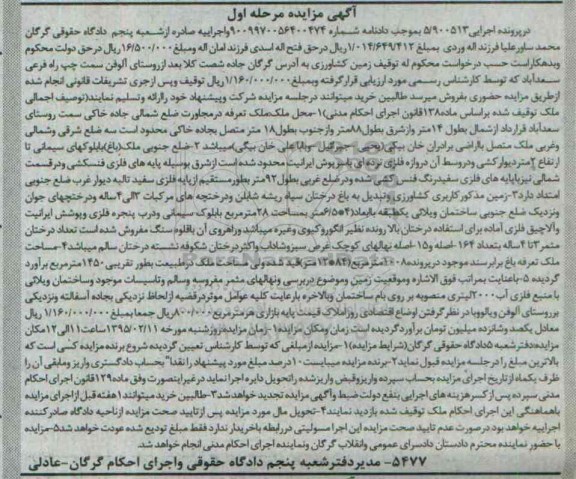 آگهی مزایده مرحله اول
درپرونده اجرایی ۵/۹۰۰۵۱۳ بموجب دادنامه شماره ۹۰۰۹۹۷۰۰۵۶۴۰۰۴۷۴ واجراییه صادره ازشعبه پنجم دادگاه حقوقی گرگان
محمد ساورعلیا فرزند اله وردی بمبلغ ۱/۰۱۴/۶۴۹/۴۱۲ ریال درحق فتح اله اسدی فرزند امان اله ومبلغ ۱۶/۵۰۰/۰۰۰ ریال درحق دولت محکوم
وبدهکاراست حسب درخواست محکوم له توقیف زمین کشاورزی به آدرس گرگان جاده شصت کلا بعد ازروستای آلوفن سمت چپ راه فرعی
سعدآباد که توسط کارشناس رسمی مورد ارزیابی قرارگرفته وبمبلغ ۱/۱۶۰/۰۰۰/۰۰۰ ریال توقیف وپس ازجری تشریفات قانونی انجام شده
ازطریق مزایده حضوری بفروش میرسد طالبین خرید میتوانند درجلسه مزایده شرکت وپیشنهاد خود راارائه وتسلیم نمایند(توصیف اجمالی
ملک توقیف شده براساس ماده ۱۳۸ قانون اجرای احکام مدنی)۱-محل ملک:ملک تعرفه درمجاورت ضلع شمالی جاده خاکی سمت روستای
سعدآباد قرارداد ازشمال بطول ۱۴ متر وازشرق بطول ۸۸ متر وازجنوب بطول ۱۸ متر متصل بجاده خاکی محدود است سه ضلع شرقی وشمالی
وغربی ملک متصل باراضی برادران خان بیکی(یحیی- جبرائیل -وباباعلی خان بیگی)میباشد ۲-ضلع جنوبی ملک(باغ)بابلوکهای سیمانی تا
ارتفاع ۲متردیوارکشی ودروسط آن دروازه فلزی نرده ای باسرپوش ایرانیت محدود شده است ازشرق بوسیله پایه های فلزی فنسکشی ودرقسمت
شمالی نیزباپایه های فلزی سفیدرنگ فنس کشی شده ودرضلع غربی بطول ۹۲متر بطورمستقیم ازپایه فلزی سفید تالبه دیوار غرب ضلع جنوبی
امتداد دارد ۳-زمین مذکور کاربری کشاورزی وتبدیل به باغ درختان سیاه ریشه شابلن ودرختچه های مرکبات ۲الی ۴ساله ودرختچهای جوان
ونزدیک ضلع جنوبی ساختمان ویلائی یکطبقه باابعاد(۴*۶/۵)متر بمساحت ۲۸مترمربع بابلوک سیمانی ودرب پنجره فلزی وپوشش ایرانیت
وآلاچیق فلزی آماده برای استفاده درختان بالا رونده نظیر انگوروکیوی وغیره میباشد وراهروی آن باقلوه سنگ مفروش شده است تعداد درختان
مثمر ۲تا ۴ساله بتعداد ۱۶۴-اصله و۱۵-اصله نهالهای کوچک غرس سبزوشاداب واکثردرختان شکوفه نشسته درختان سالم میباشد ۴-مساحت
ملک تعرفه باغ برابرسند موجود درپرونده ۱۰۰۸مترمربع (۸۴*۱۲)متر قیدشده ولی مساحت ملک درطبیعت بطور تقریبی ۱۴۵۰مترمربع برآورد
گردیده ۵-باعنایت بمراتب فوق الاشاره وموقعیت زمین وموضوع دربرسی ونهالهای مثمر مغروسه وسالم وتاسیسات موجود وساختمان ویلائی
با منبع فلزی آب ۲۰۰۰لیتری منصوبه بر روی بام ساختمان وبالاخره بارعایت کلیه عوامل موثردرقضیه ازلحاظ نزدیکی بجاده آسفالته ونزدیکی
برروستای آلوفن وبالوبا در نظرگرفتن اوضاع اقتصادی روزاملاک قیمت پایه بازاری هرمترمربع ۸۰۰/۰۰۰ریال جمعا بمبلغ ۱/۱۶۰/۰۰۰/۰۰۰ ریال
معادل یکصد وشانزده میلیون تومان برآوردگردیده است زمان ومکان مزایده ۱-زمان مزایده:روزشنبه مورخه ۱۳۹۵/۰۲/۱۱ ساعت ۱۱الی ۱۲مکان
مزایده:دفترشعبه ۵دادگاه حقوقی گرگان(شرایط مزایده)۱-مزایده ازمبلغی که توسط کارشناسی تعیین گردیده شروع برنده مزایده کسی است که
بالاترین مبلغ را درجلسه مزایده قبول نماید ۲-برنده مزایده میبایست ۱۰درصد مبلغ مورد پیشنهاد را نقدا"بحساب دادگستری واریز ومابقی آن را
ظرف یکماه ازتاریخ اجرای مزایده بحساب سپرده واریزوقبض واریزشده راتحویل دایره اجرا نماید درغیراینصورت وفق ماده ۱۲۹قانون اجرای احکام
مدنی سپرده پس از کسرهزینه های اجرایی بنفع دولت ضبط وآگهی مزایده تجدید خواهدشد ۳-طالبین خرید میتوانند ۱هفته قبل ازاجرای مزایده
باهماهنگی این اجرای احکام ملک توقیف شده بازدید نمایند ۴-تحویل مال مورد مزایده پس ازتایید صحت مزایده ازناحیه دادگاه صادرکننده
اجراییه خواهد بود درصورت عدم تایید صحت مزایده این اجرا مسولیتی دررابطه باخریدار ندارد فقط مبلغ تودیع شده عودت خواهد شد ۵-مزایده
با حضور نماینده محترم دادستان دادسرای عمومی وانقلاب گرگان ونماینده اجرای احکام مدنی انجام خواهد شد.
۵۴۷۷- مدیردفترشعبه پنجم دادگاه حقوقی واجرای احکام گرگان-عادلی